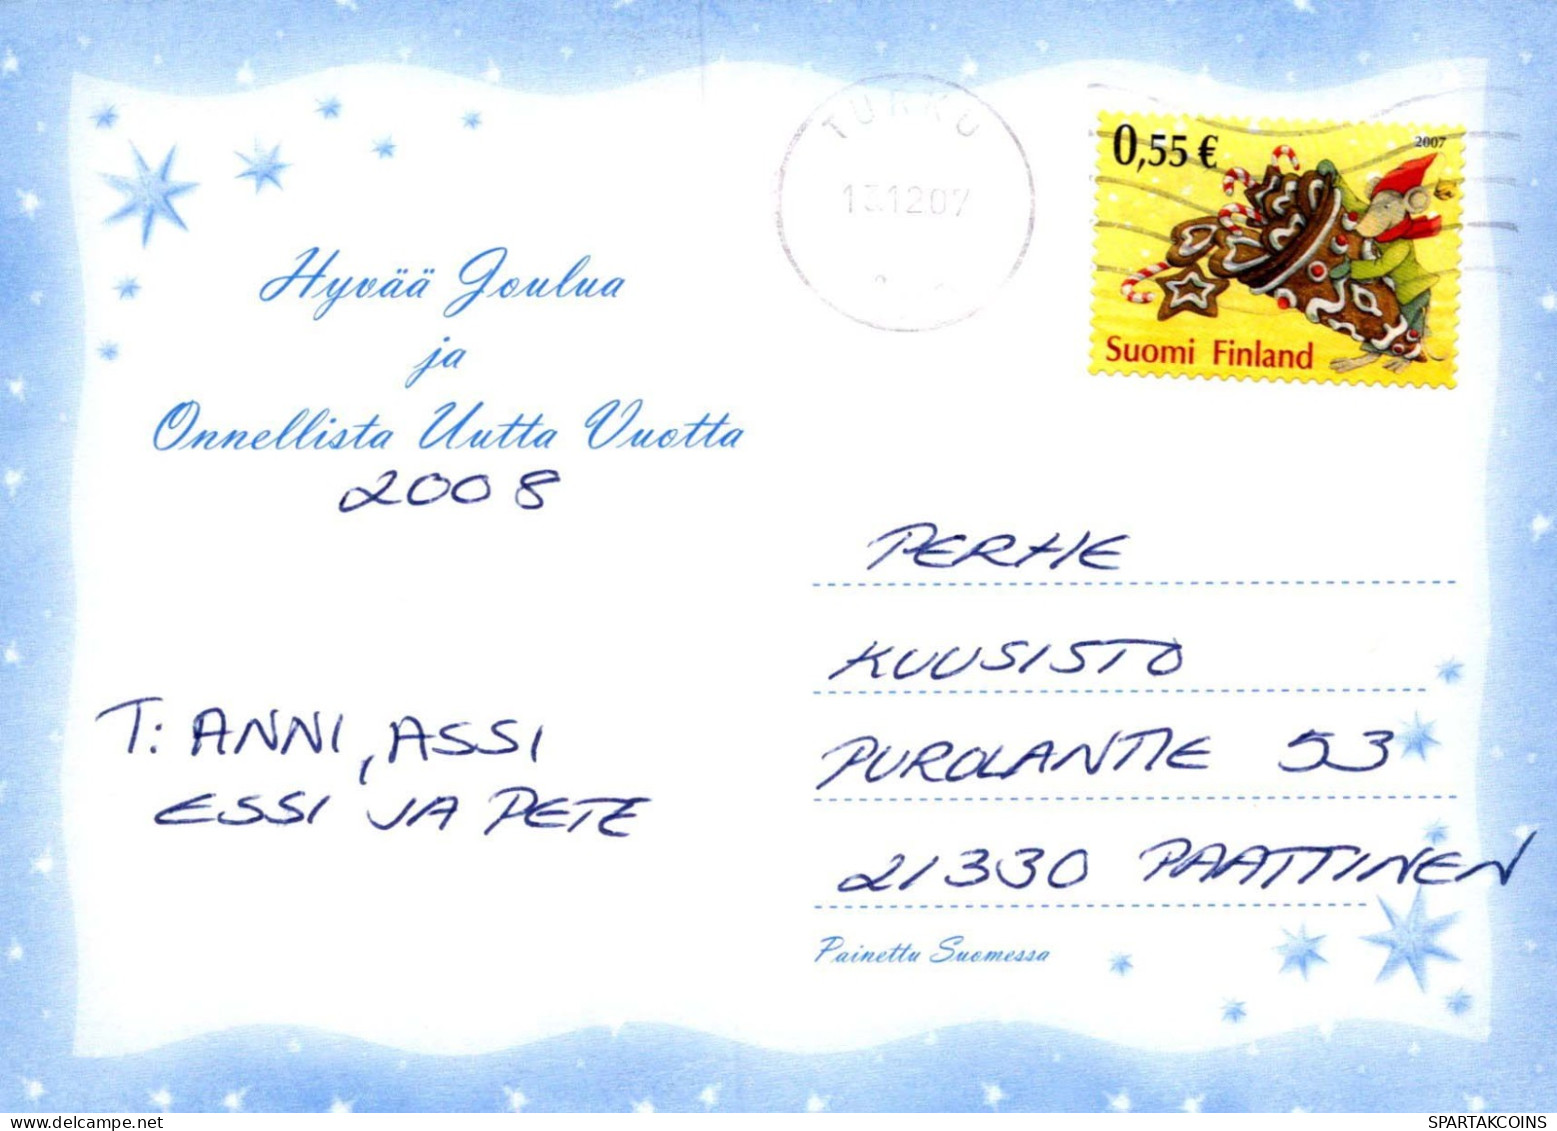 TURKU
13.12.07
0,55 €
2007
Suomi Finland
Hyvää Joulua
ja
Onnellista Uutta Vuotta
2008
PERHE
KUUSISTO
PUROLANTIE 53
21330 PAATTINEN
T: ANNI, ASSI
ESSI JA PETE
Painettu Suomessa
SPARTAKCOINS